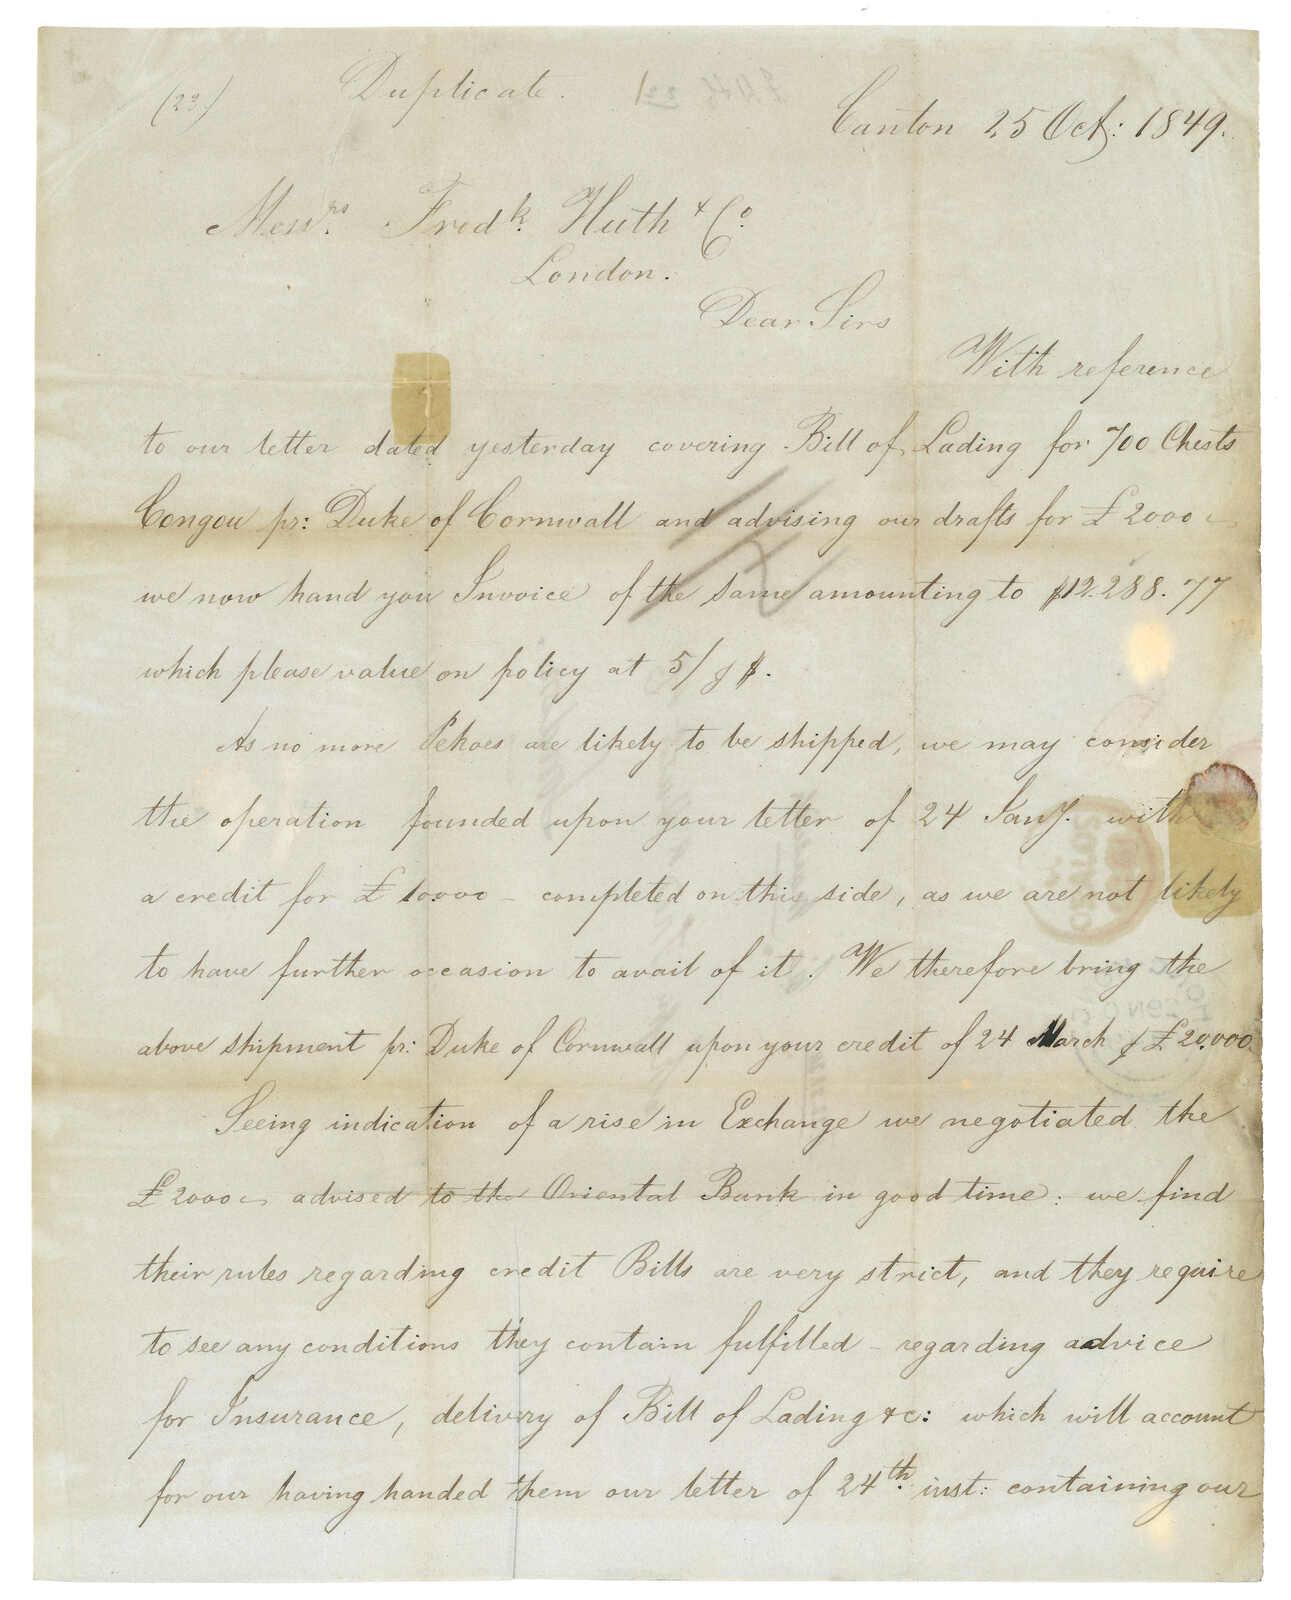 (23.)
Duplicate.
Canton 25 Oct: 1849.
Messrs. Fredk. Huth & Co.
London.
Dear Sirs
With reference
to our letter dated yesterday covering Bill of Lading for 700 Chests
Congou pr: Duke of Cornwall and advising our drafts for £2000
we now hand you Invoice of the same amounting to $12.288.77
which please value on policy at 5/ $.
As no more Pekoes are likely to be shipped, we may consider
the operation founded upon your letter of 24 Jany. with
a credit for £10.000 – completed on this side, as we are not likely
to have further occasion to avail of it. We therefore bring the
above shipment pr: Duke of Cornwall upon your credit of 24 March £20.000.
Seeing indication of a rise in Exchange we negotiated the
£2000 advised to the Oriental Bank in good time: we find
their rules regarding credit Bills are very strict, and they require
to see any conditions they contain fulfilled – regarding advice
for Insurance, delivery of Bill of Lading &c: which will account
for our having handed them our letter of 24th. inst: containing our